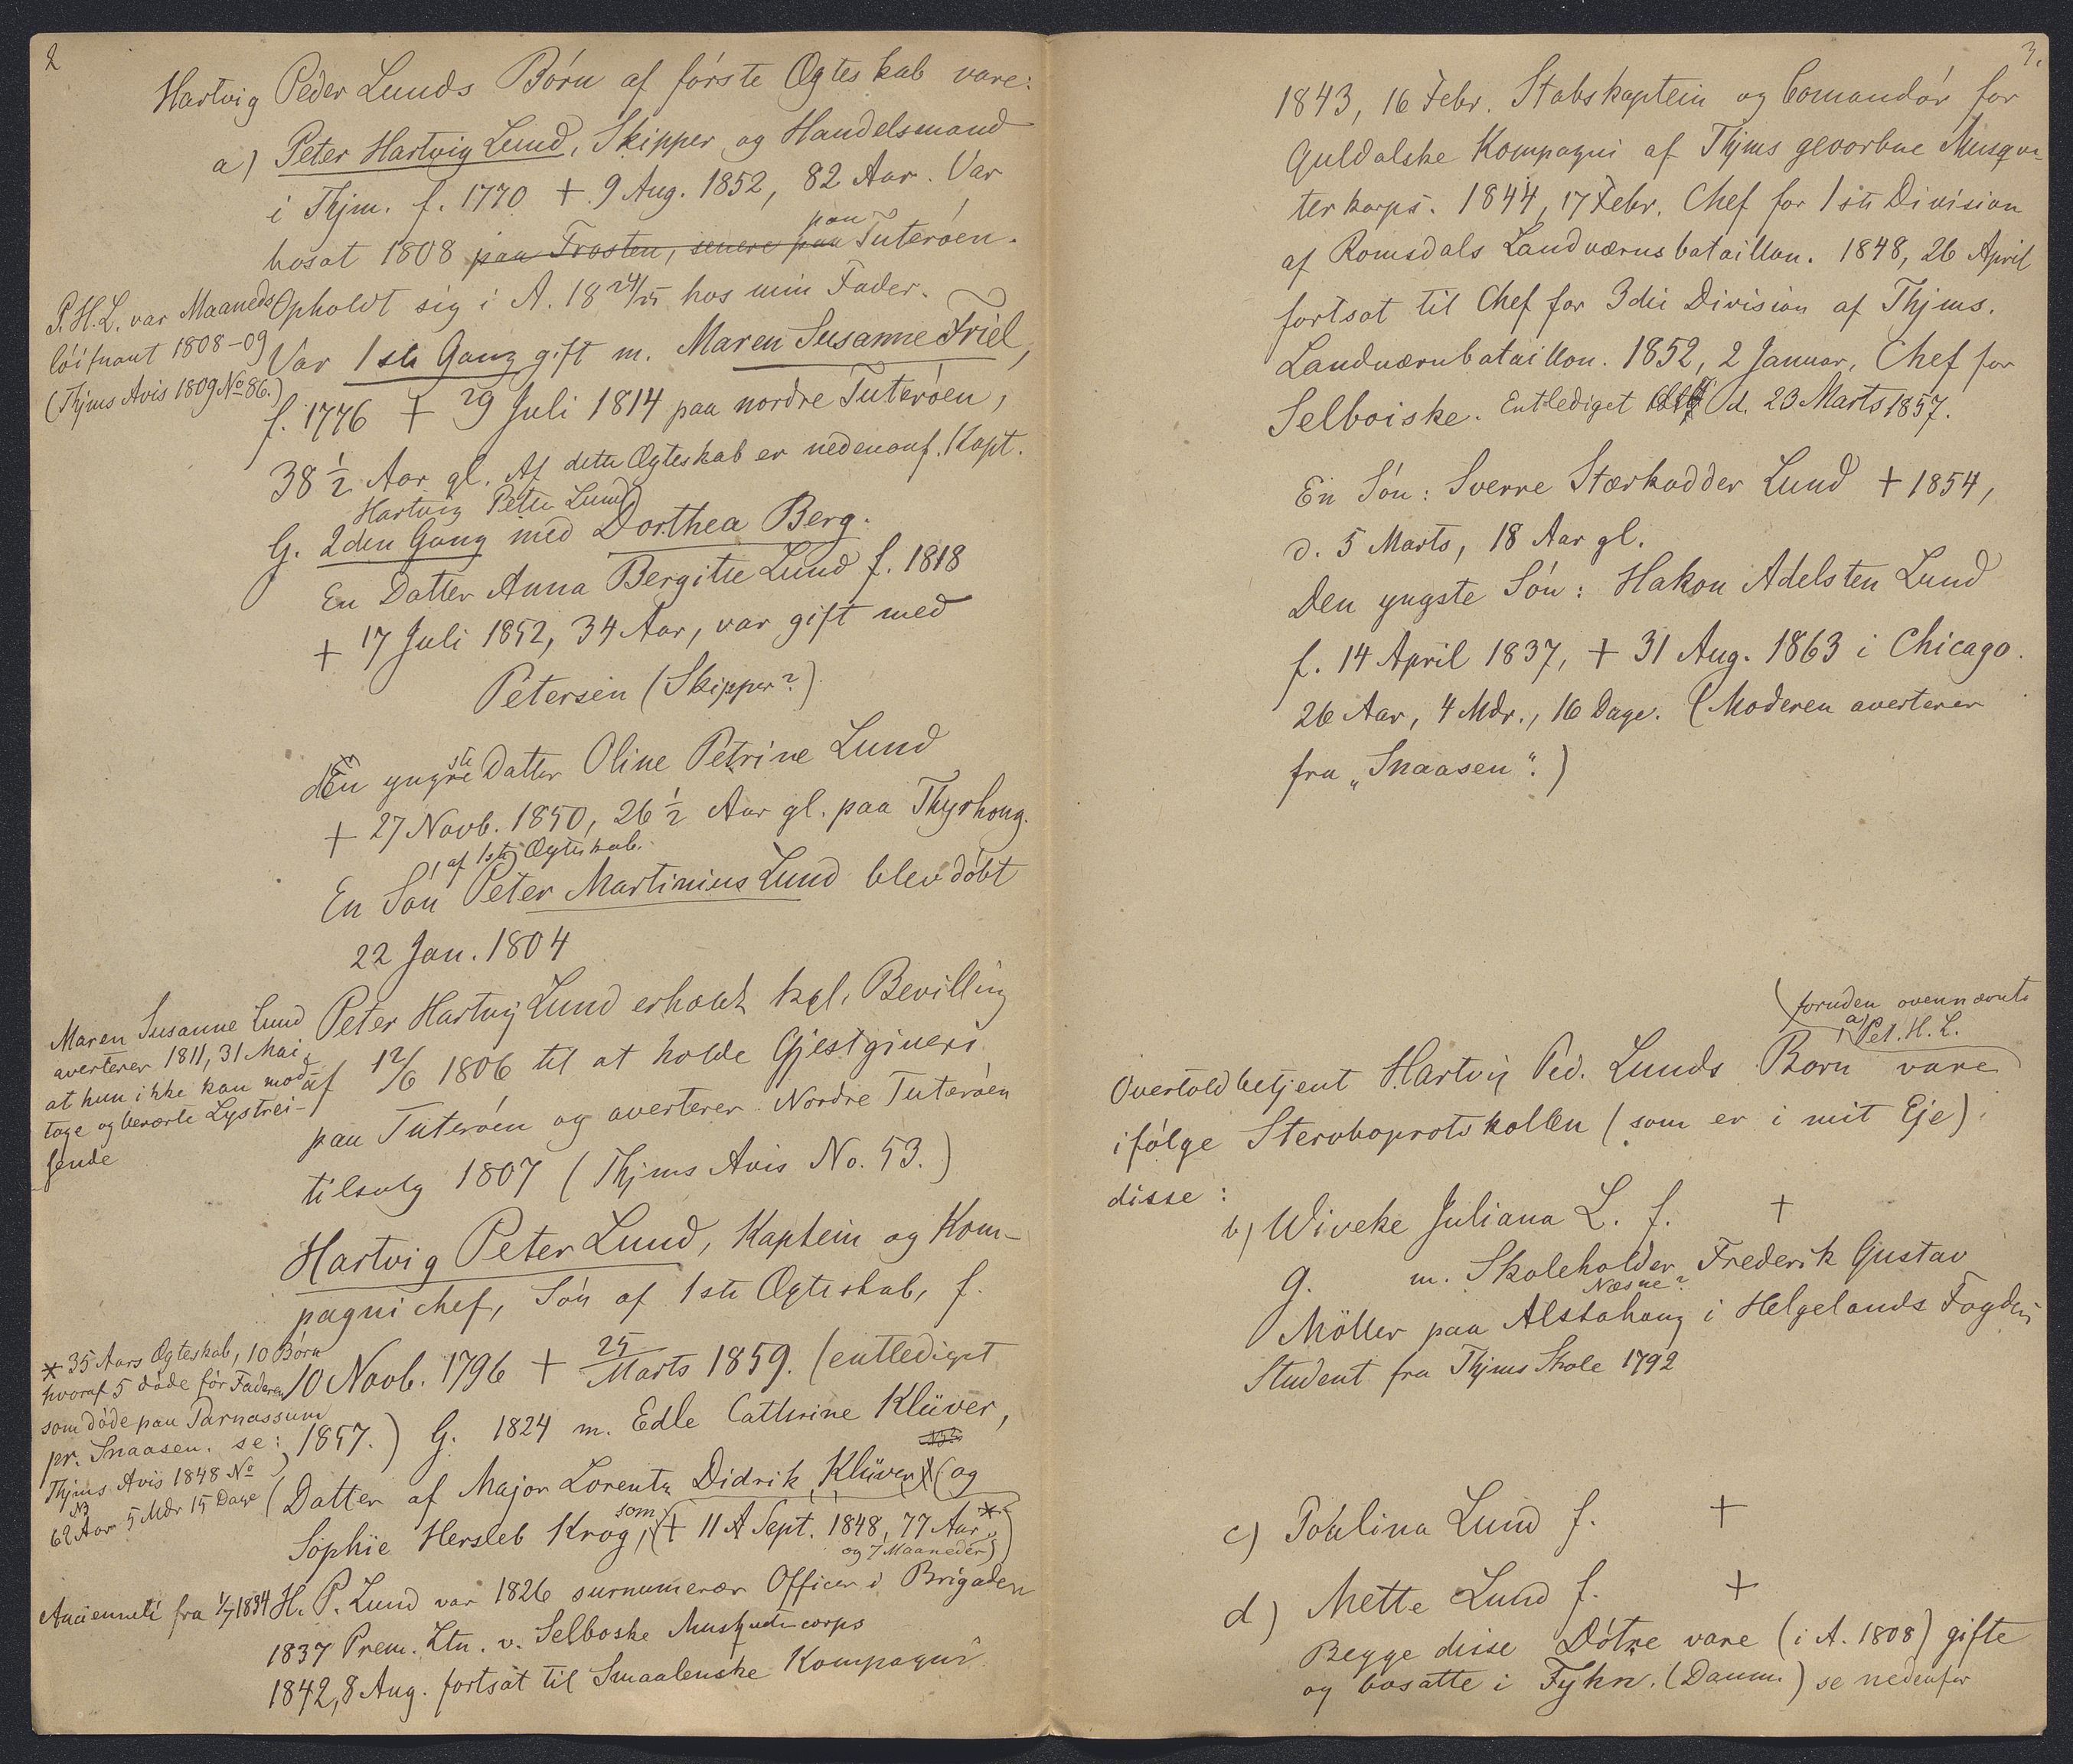 2
Hartvig Peder Lunds Börn af förste Ægteskab vare:
a) Peter Hartvig Lund, Skipper og Handelsmand
i Thjm. f. 1770 + 9 Aug. 1852, 82 Aar. Var
paa
bosat 1808 paa Frosten, senere paa Tuteröen.
Opholdt sig i A. 18 24/25 hos min Fader.
P. H. L. var Maaneds
löitnant 1808-09
(Thjms Avis 1809 No 86.)
Var 1ste Gang gift m. Maren Susanne Friel,
f. 1776 + 29 Juli 1814 paa nordre Tuteröen,
38 1/2 Aar gl. Af dette Ægteskab er nedenanf. Kapt.
Hartvig Peter Lund
G. 2den Gang med Dorthea Berg.
En Datter Anna Bergitte Lund f. 1818
+ 17 Juli 1852, 34 Aar, var gift med
Petersen (Skipper?).
den yngste Datter Oline Petrine Lund
+ 27 Novb. 1850, 26 1/2 Aar gl. paa Thyrhoug.
af 1ste Ægteskab.
En Sön Peter Martinius Lund blev döbt
22 Jan. 1804
Maren Susanne Lund
averterer 1811, 31 Mai,
at hun ikke kan mod-
tage og beværte Lystrei-
sende
Peter Hartvig Lund erholdt kgl. Bevilling
af 12/6 1806 til at holde Gjestgiveri
paa Tuteröen og averterer Nordre Tuteröen
tilsalg 1807 (Thjms Avis No. 53.)
Hartvig Peter Lund, Kaptein og Kom-
pagnichef, Sön af 1ste Ægteskab, f.
10 Novb. 1796 + 25 Marts 1859. (entlediget
1857.) G. 1824 m. Edle Cathrine Klüver,
(Datter af Major Lorentz Didrik Klüver) (og
Sophie Hersleb Krog, som (+ 11 Sept. 1848, 77 Aar *
og 7 Maaneder))
* 35 Aars Ægteskab, 10 Börn
hvoraf 5 döde för Faderen
som döde paa Parnassum
pr. Snaasen. se:
Thjms Avis 1848 No
62 Aar 5 Mdr 15 Dage
Anciennitè fra 1/7 1834
H. P. Lund var 1826 surnumerær Officer i Brigaden
1837 Prem. Ltn. v. Selboske Musketercorps
1842, 8 Aug. fortsat til Smaalenske Kompagni
3.
1843, 16 Febr. Stabskaptein og Comandör for
Guldalske Kompagni af Thjms gevorbne Musque-
terkorps. 1844, 17 Febr. Chef for 1ste Division
af Romsdals Landværnsbataillon. 1848, 26 April
fortsat til Chef for 3die Division af Thjms.
Landværnbataillon. 1852, 2 Januar, Chef for
Selboiske. Entlediget d. 23 Marts 1857.
En Sön: Sverre Stærkodder Lund + 1854,
d. 5 Marts, 18 Aar gl.
Den yngste Sön: Hakon Adelsten Lund
f. 14 April 1837, + 31 Aug. 1863 i Chicago.
26 Aar, 4 Mdr., 16 Dage. (Moderen averterer
fra „Snaasen“.)
(foruden ovennævnte
a) Pet. H. L.
Overtoldbetjent Hartvig Ped. Lunds Börn vare
ifölge Stervboprotokollen (som er i mit Eje)
disse:
b) Wiveke Juliana L. f. +
g. m. Skoleholder Frederik Gustav
Næsne?
Möller paa Alstahoug i Helgelands Fogderi
Student fra Thjms Skole 1792
c) Paulina Lund f. +
d) Mette Lund f. +
Begge disse Dötre vare (i A. 1808) gifte
og bosatte i Fyhn. (Danm.) se nedenfor